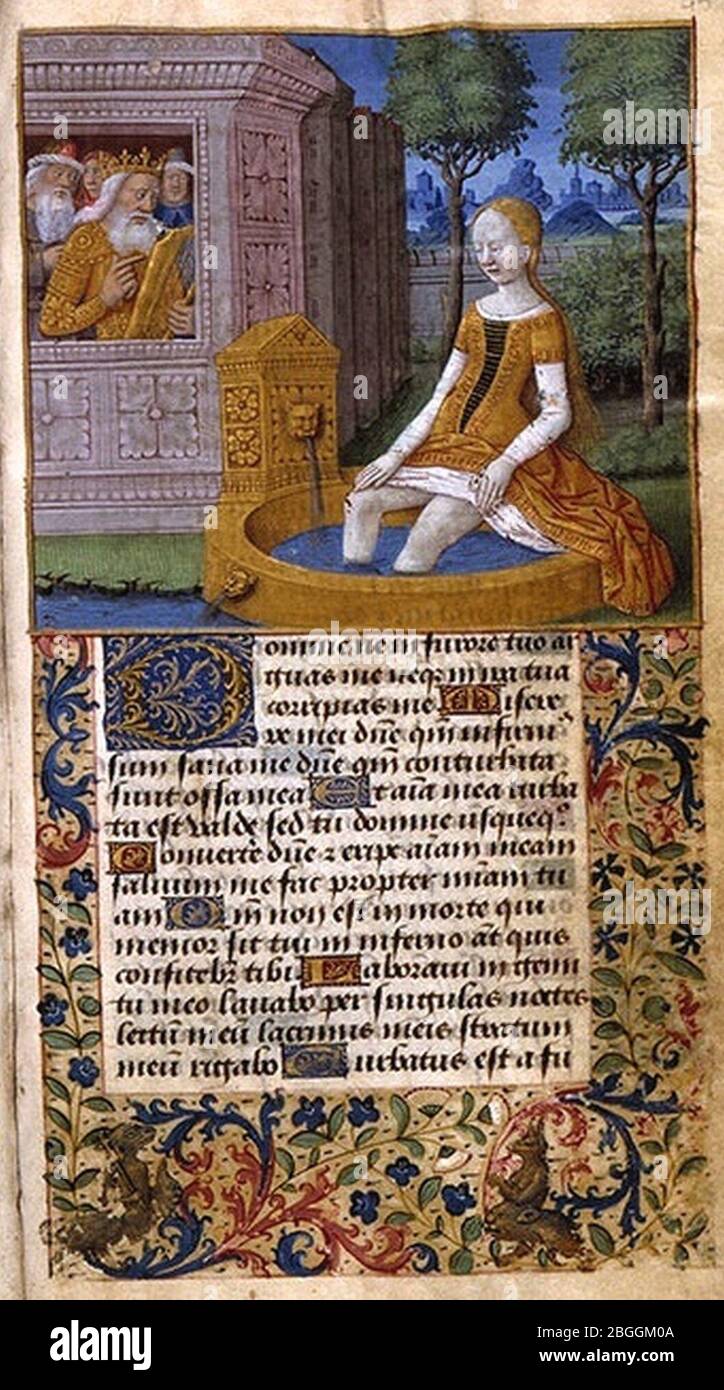 Domine ne in furore tuo ar
guas me neqꝫ in ira tua
corripias me Misere
re mei dn̄e qm̄ infirm9
sum sana me dn̄e qm̄ conturbata
sunt ossa mea Et aīa mea turba
ta est valde sed tu domine usqueqͦ
Convertere dn̄e ⁊ eripe aīam meam
salvum me fac propter mīam tu
am Qm̄ non est in morte qui
memor sit tui in inferno aūt quis
confitebr̄ tibi Laboravi in gemi
tu meo lavabo per singulas noctes
lectū meū lacrimis meis stratum
meū rigabo Turbatus est a fu
alamy
Image ID: 2BGGM0A
www.alamy.com